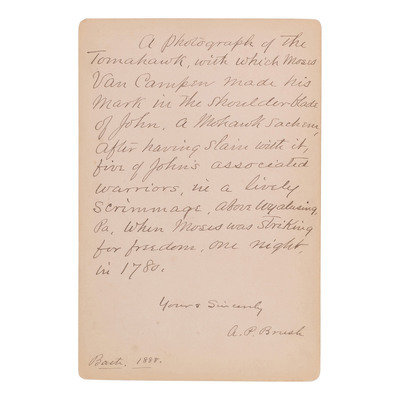 A Photograph of the
Tomahawk, with which Moses
Van Campen made his
Mark in the Shoulder-blade
of John, A Mohawk Sachem,
after having slain with it,
five of John's associated
warriors, in a lively
Scrimmage, above Wyalusing
Pa, when Moses was striking
for freedom, one night,
in 1780.
Yours Sincerely
A. P. Brush
Bath, 1888.